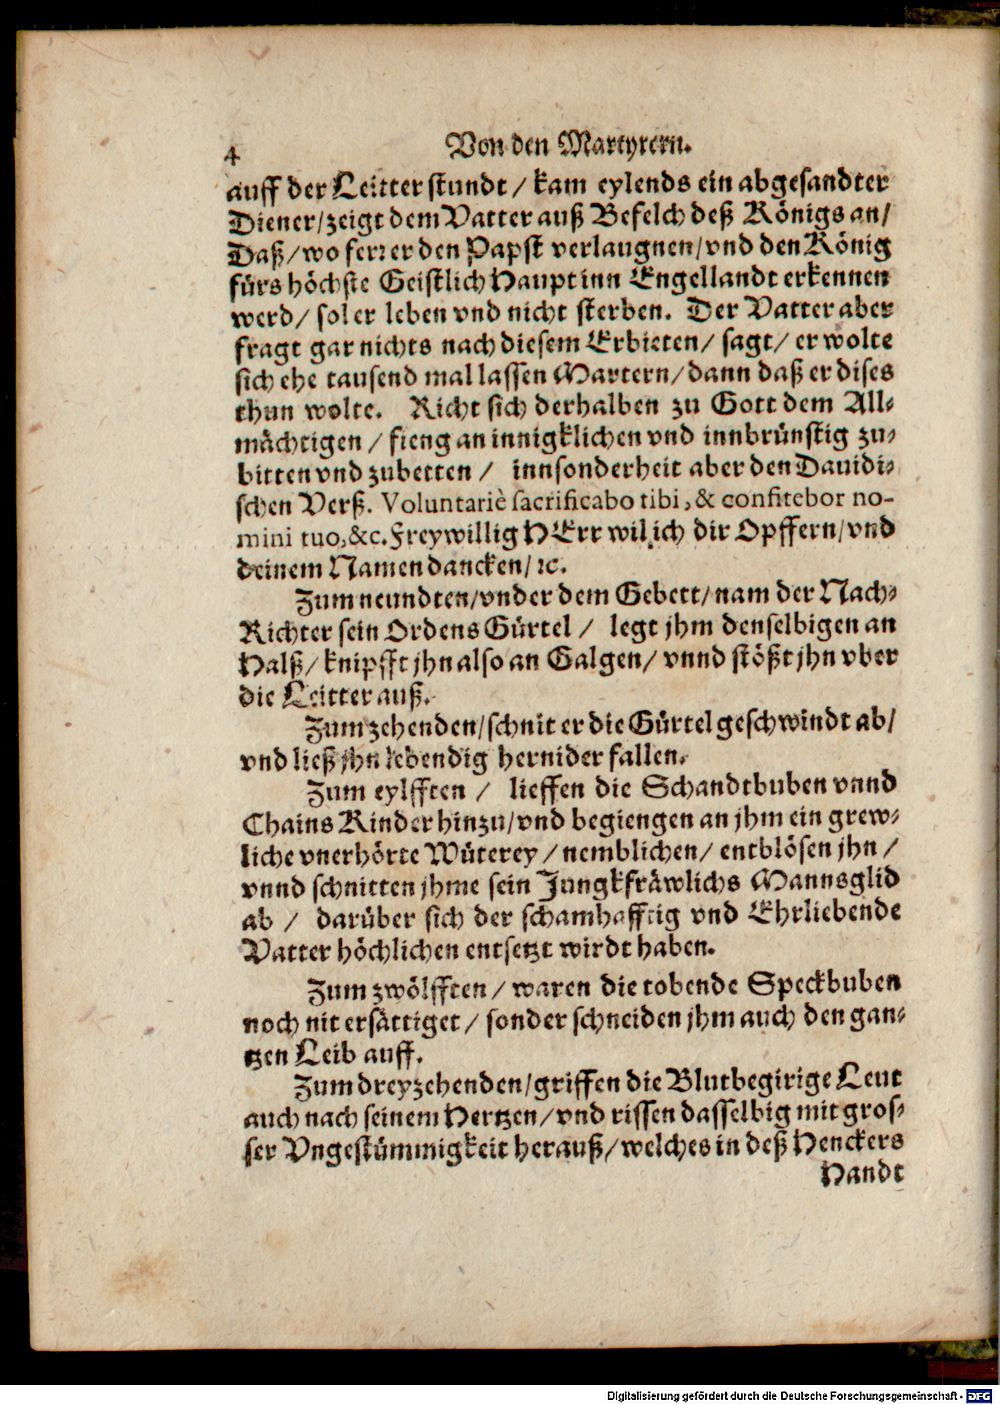 4
Von den Martyrern.
auff der Leitter stundt / kam eylends ein abgesandter
Diener / zeigt dem Vatter auß Befelch deß Königs an /
Daß / wo ferr er den Papst verlaugnen / vnd den König
fürs höchste Geistlich Haupt inn Engellandt erkennen
werd / sol er leben vnd nicht sterben. Der Vatter aber
fragt gar nichts nach diesem Erbieten / sagt / er wolte
sich ehe tausend mal lassen Martern / dann daß er dises
thun wolte. Richt sich derhalben zu Gott dem All⸗
mächtigen / fieng an innigklichen vnd innbrünstig zu⸗
bitten vnd zubetten / innsonderheit aber den Dauidi⸗
schen Verß. Voluntariè sacrificabo tibi, & confitebor no-
mini tuo, &c. Freywillig HErr wil ich dir Opffern / vnd
deinem Namen dancken / ꝛc.
Zum neundten / vnder dem Gebett / nam der Nach⸗
Richter sein Ordens Gürtel / legt jhm denselbigen an
Halß / knipfft jhn also an Galgen / vnnd stößt jhn vber
die Leitter auß.
Zum zehenden / schnit er die Gürtel geschwindt ab /
vnd ließ jhn lebendig hernider fallen.
Zum eylfften / lieffen die Schandtbuben vnnd
Chains Kinder hinzu / vnd begiengen an jhm ein grew⸗
liche vnerhörte Wüterey / nemblichen / entblösen jhn /
vnnd schnitten jhme sein Jungkfräwlichs Mannsglid
ab / darüber sich der schamhafftig vnd Ehrliebende
Vatter höchlichen entsetzt wirdt haben.
Zum zwölfften / waren die tobende Speckbuben
noch nit ersättiget / sonder schneiden jhm auch den gan⸗
tzen Leib auff.
Zum dreyzehenden / griffen die Blutbegirige Leut
auch nach seinem Hertzen / vnd rissen dasselbig mit gros⸗
ser Vngestümmigkeit herauß / welches in deß Henckers
Handt
Digitalisierung gefördert durch die Deutsche Forschungsgemeinschaft - DFG